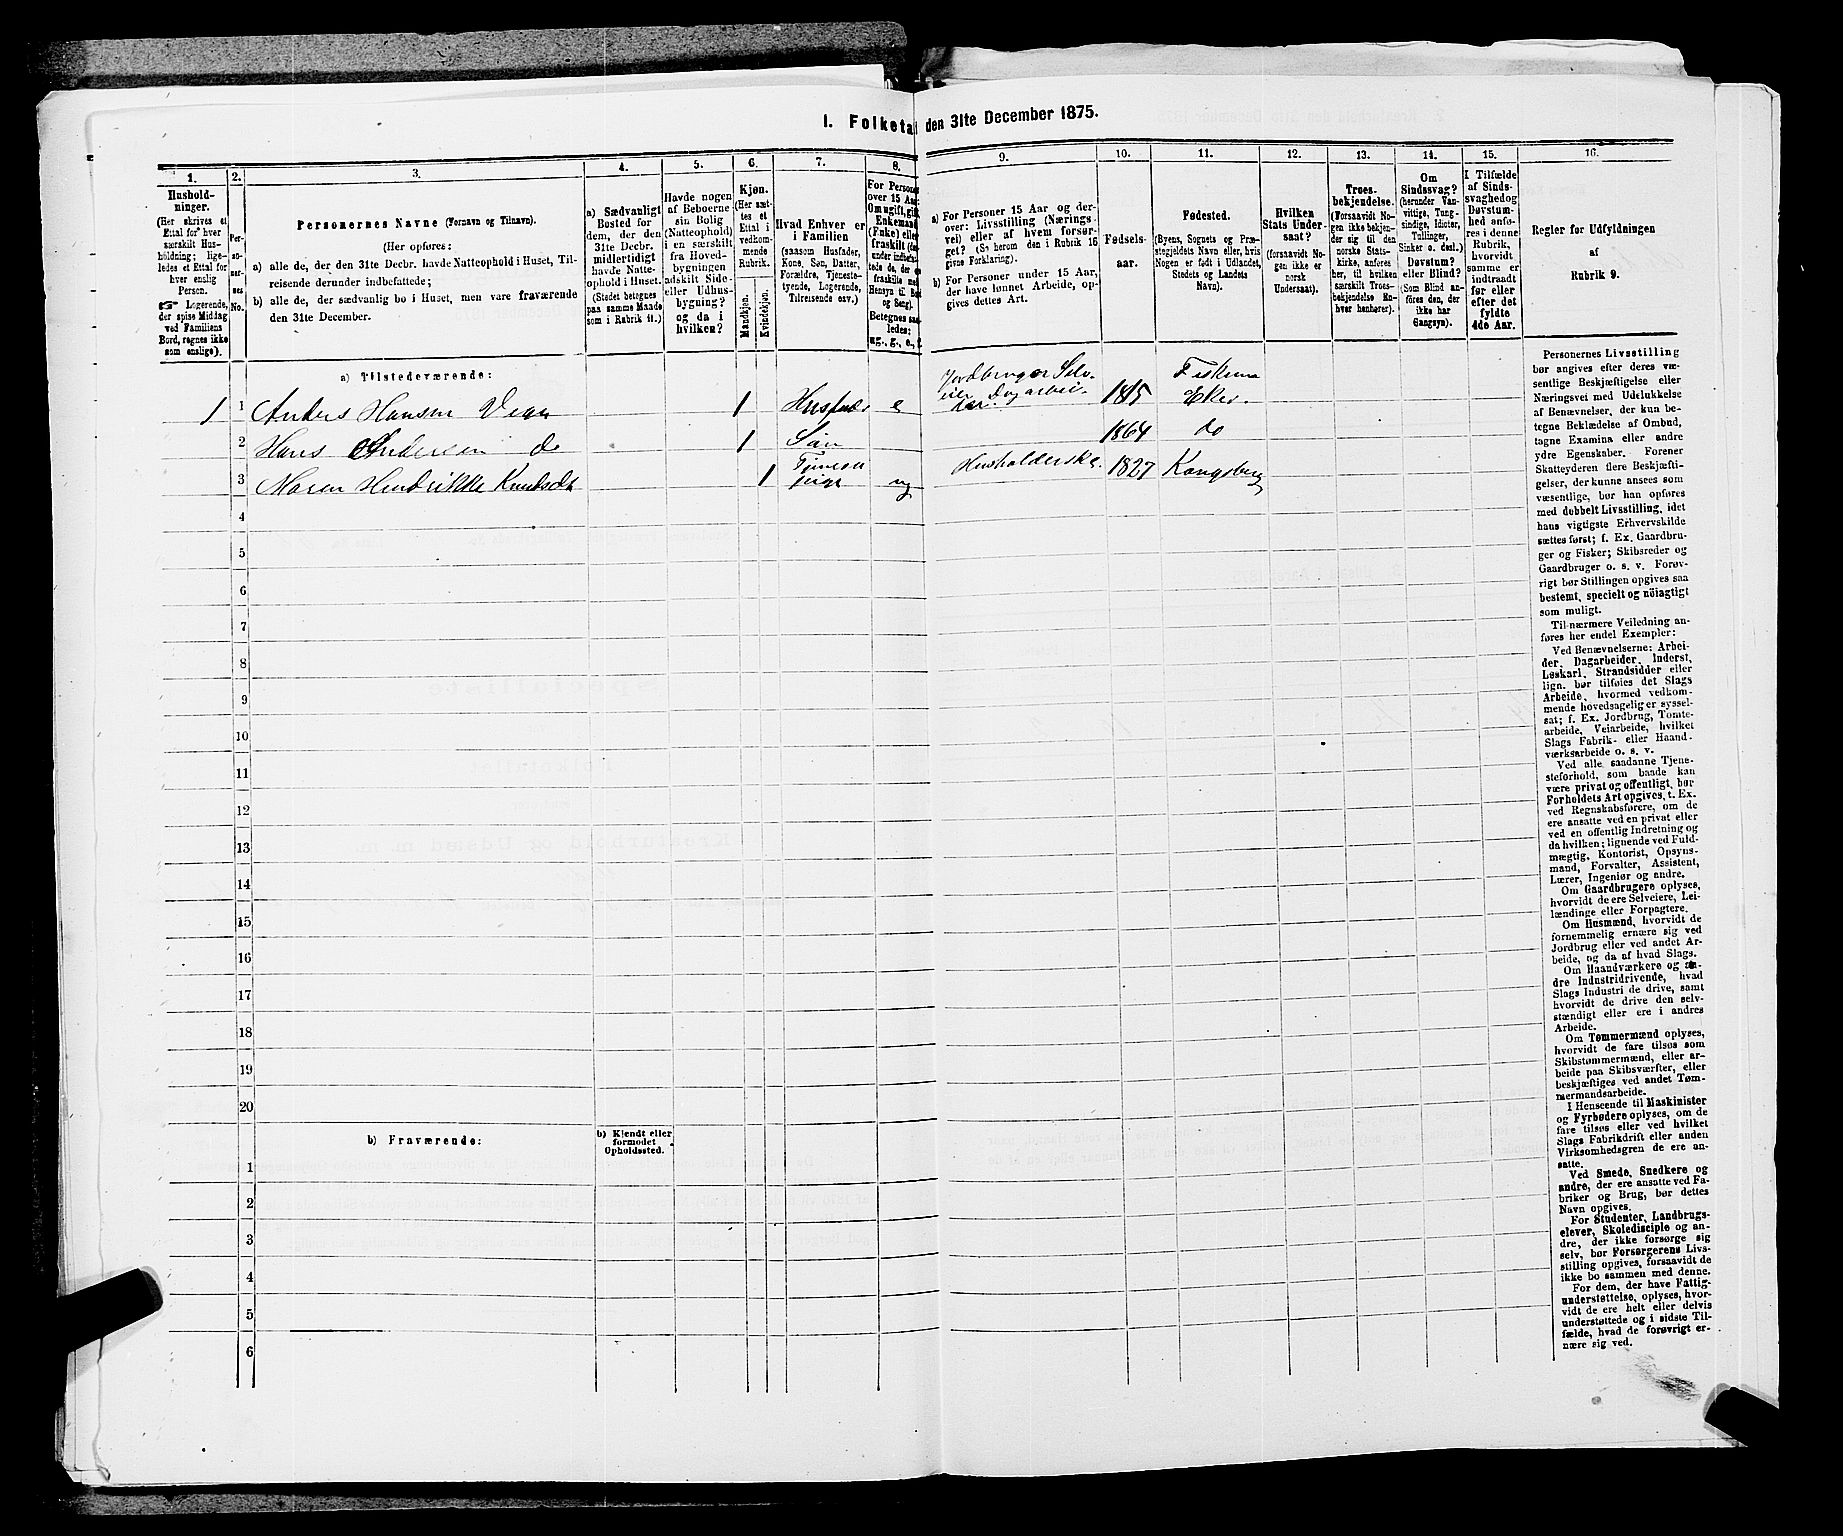 1. Folketal den 31te December 1875.
1. 2. 3. 4. 5. 6. 7. 8. 9. 10. 11. 12. 13. 14. 15. 16.
Hushold-
ninger.
(Her skrives et
Ettal for hver
særskilt Hus-
holdning; lige-
ledes et Ettal for
hver enslig
Person.
☞ Logerende,
der spise Middag
ved Familiens
Bord, regnes ikke
som enslige).
Per-
soner-
nes
No.
Personernes Navne (Fornavn og Tilnavn).
(Her opføres:
a) alle de, der den 31te Decbr. havde Natteophold i Huset, Til-
reisende derunder indbefattede;
b) alle de, der sædvanlig bo i Huset, men vare fraværende
den 31te December.
a) Sædvanligt
Bosted for
dem, der den
31te Decbr.
midlertidigt
havde Natte-
ophold i Huset.
(Stedet betegnes
paa samme Maade
som i Rubrik 11.)
Havde nogen
af Beboerne
sin Bolig
(Natteophold)
i en særskilt
fra Hoved-
bygningen
adskilt Side-
eller Udhus-
bygning?
og da i
hvilken?
Kjøn.
(Her sæt-
tes et
Ettal i
vedkom-
mende
Rubrik.)
Mandkjøn.
Kvindekjøn.
Hvad Enhver er
i Familien
(saasom Husfader,
Kone, Søn, Datter,
Forældre, Tjeneste-
tyende, Logerende,
Tilreisende osv.)
For Persone
over 15 Aar
Om ugift, gift,
Enkemand
(Enke) eller
fraskilt
a) For Personer 15 Aar og der-
over: Livsstilling (Nærings-
vei) eller af hvem forsør-
get? (Se herom den i Rubrik 16
givne Forklaring).
b) For Personer under 15 Aar,
der have lønnet Arbeide, op-
gives dettes Art.
Fødsels-
aar.
Fødested.
(Byens, Sognets og Præ-
stegjeldets Navn eller, hvis
Nogen er født i Udlandet,
Stedets og Landets
Navn).
Hvilken
Stats Under-
saat?
(forsaavidt No-
gen ikke er
norsk
Undersaat).
Troes-
bekjendelse.
(Forsaavidt No-
gen ikke bekjen-
der sig til den
norske Stats-
kirke, anføres
her, til hvilken
særskilt Troes-
bekjendelse En-
hver henhører).
Om
Sindssvag?
(herunder Van-
vittige, Tung-
sindige, Idioter,
Tullinger,
Sinker o. desl.)
Døvstum?
eller Blind?
(Som Blind an-
føres den, der
ikke har
Gangsyn).
I Tilfælde
af Sinds-
svaghed og
Døvstum-
hed anfø-
res i denne
Rubrik,
hvorvidt
samme er
indtraadt
før eller
efter det
fyldte
4de Aar.
Regler for Udfyldningen
af
Rubrik 9.
a) Tilstedeværende:
1 1 Anders Hansen 1 e Jordbruger Selv- 1815 Eker.
2 Hans Andersen do 1 Søn 1864 do
3 Maren Hendrikke 1 ug Husholderske. 1827 Kongsberg
4
5
6
7
8
9
10
11
12
13
14
15
16
17
18
19
20
b) Fraværende:
b) Kjendt eller
formodet
Opholdssted.
1
2
3
4
5
6
Personernes Livsstilling
bør angives efter deres væ-
sentlige Beskjæftigelse eller
Næringsvei med Udelukkelse
af Benævnelser, der kun be-
tegne Beklædelse af Ombud,
tagne Examina eller andre
ydre Egenskaber. Forener
Skatteyderen flere Beskjæfti-
gelser, der kunne ansees som
væsentlige, bør han opføres
med dobbelt Livsstilling, idet
hans vigtigste Erhvervskilde
sættes først; f. Ex. Gaardbru-
ger og Fisker; Skibsreder og
Gaardbruger o. s. v. Forøv-
rigt bør Stillingen opgives saa
bestemt, specielt og nøiagtigt
som muligt.
Til nærmere Veiledning an-
føres her endel Exempler:
Ved Benævnelserne: Arbei-
der, Dagarbeider, Inderst,
Løskarl, Strandsidder eller
lign. bør tilføies det Slags
Arbeide, hvormed vedkom-
mende hovedsagelig er syssel-
sat; f. Ex. Jordbrug, Tomte-
arbeide, Veiarbeide, hvilket
Slags Fabrik- eller Haand-
værksarbeide o. s. v.
Ved alle saadanne Tjene-
steforhold, som baade kan
være privat og offentligt, bør
Forholdets Art opgives, t. Ex.
ved Regnskabsførere, om de
ere ansatte ved en privat eller
ved en offentlig Indretning og
da hvilken; lignende ved Fuld-
mægtig, Kontorist, Opsyns-
mand, Forvalter, Assistent,
Lærer, Ingeniør og andre.
Om Gaardbrugere oplyses,
hvorvidt de ere Selveiere, Lei-
lændinge eller Forpagtere.
Om Husmænd, hvorvidt de
fornemmelig ernære sig ved
Jordbrug eller ved andet Ar-
beide, og da af hvad Slags.
Om Haandværkere og an-
dre Industridrivende, hvad
Slags Industri de drive, samt
hvorvidt de drive den selv-
stændigt eller ere i andres
Arbeide.
Om Tømmermænd oplyses,
hvorvidt de fare tilsøs som
Skibstømmermænd, eller ar-
beide paa Skibsværfter, eller
beskjæftiges ved andet Tøm-
mermandsarbeide.
I Henseende til Maskinister
og Fyrbødere oplyses, om de
fare tilsøs eller ved hvilket
Slags Fabrikdrift eller anden
Virksomhedsgren de ere an-
satte.
Ved Smede, Snedkere og
andre, der ere ansatte ved Fa-
briker og Brug, bør dettes
Navn opgives.
For Studenter, Landbrugs-
elever, Skoledisciple og an-
dre, der ikke forsørge sig
selv, bør Forsørgerens Livs-
stilling opgives, forsaavidt de
ikke bo sammen med denne.
For dem, der have Fattig-
understøttelse, oplyses, hvor-
vidt de ere helt eller delvis
understøttede og i sidste Til-
fælde, hvad de forøvrigt er-
nære sig ved.